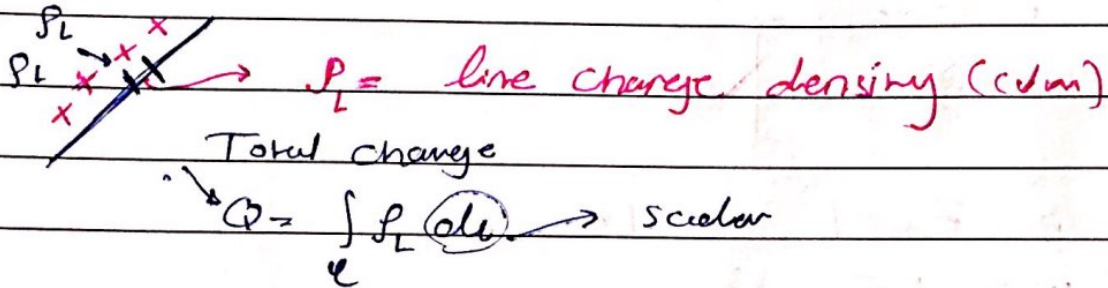 ρL
ρL
ρL = line charge density (c/m)
Total charge
Q = ∫ ρL dl → scalar